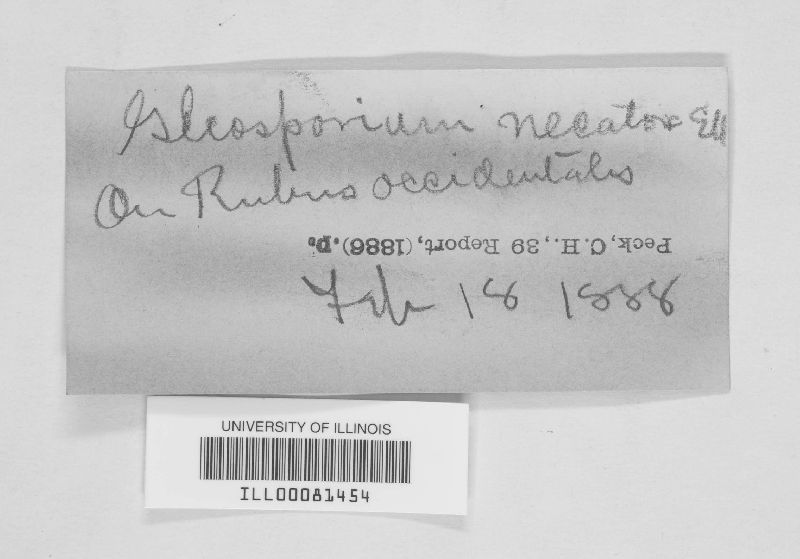 Gleosporium necator Ell
On Rubus occidentalis
Peck, C. H., 39 Report, (1886). p.
Feb 18 1888
UNIVERSITY OF ILLINOIS
ILL00081454